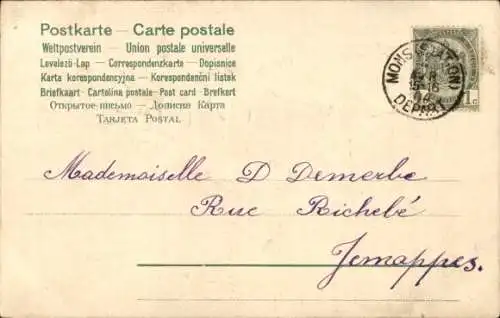 Postkarte — Carte postale
Weltpostverein — Union postale universelle
Levelező-Lap — Correspondenzkarte — Dopisnice
Karta korespondencyjna — Korespondenční lístek
Briefkaart - Cartolina postale - Post card - Brefkort
Открытое письмо — Дописна Карта
Tarjeta Postal
MONS (STATION)
15-16
DEPART
1 c
Mademoiselle D Demerbe
Rue Richebé
Jemappes.